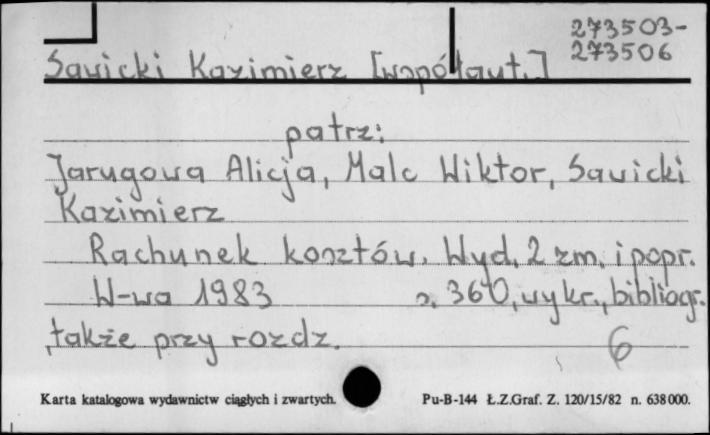 273503-
273506
Sawicki Kazimierz [współaut.]
patrz:
Jarugowa Alicja, Malc Wiktor, Sawicki
Kazimierz
Rachunek kosztów. Wyd. 2 zm. i popr.
W-wa 1983 s. 360, wykr., bibliogr.
także przy rozdz.
6
Karta katalogowa wydawnictw ciągłych i zwartych. Pu-B-144 Ł.Z.Graf. Z. 120/15/82 n. 638 000.